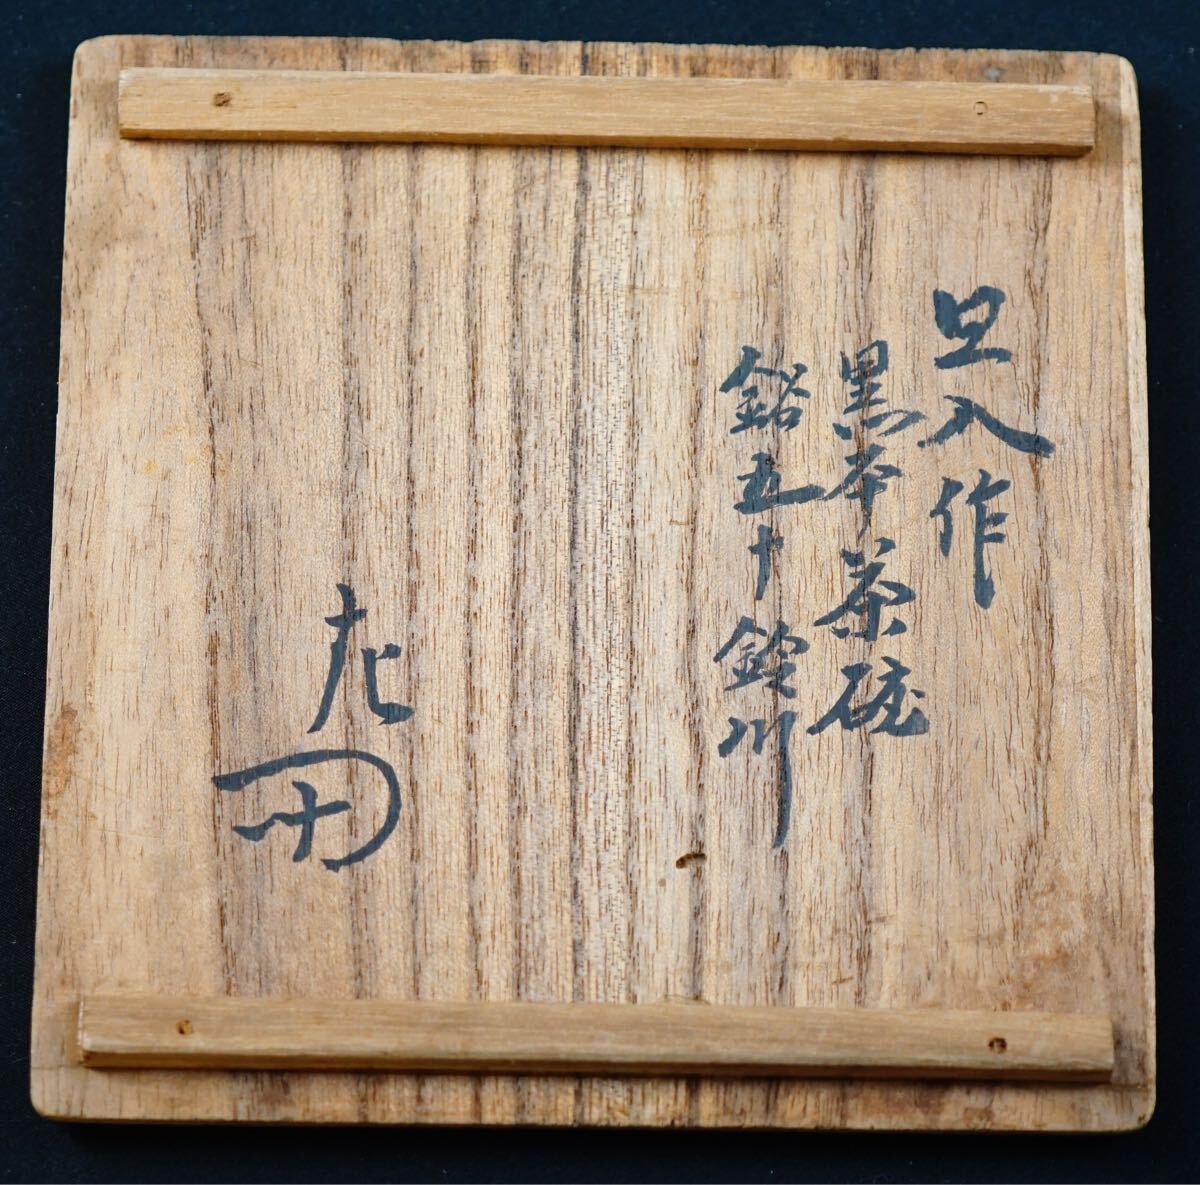 旦入作
黒平茶碗
銘五十鈴川
左(花押)